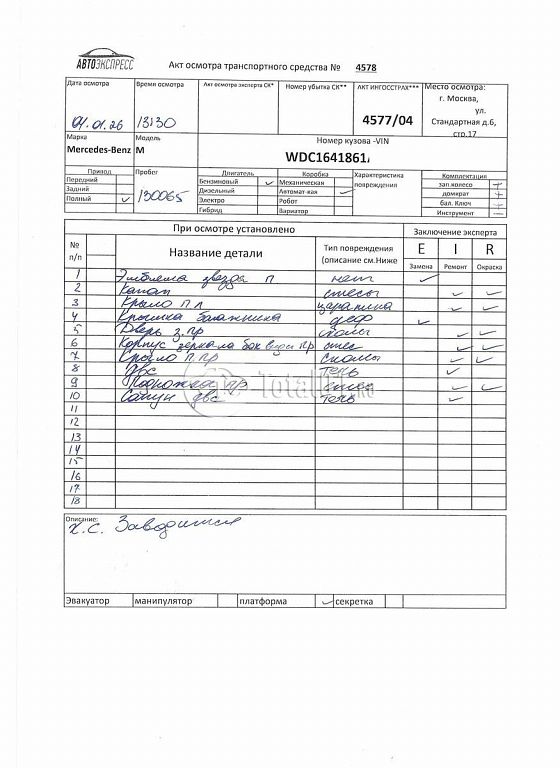 АВТОЭКСПРЕСС
Акт осмотра транспортного средства № 4578
Дата осмотра Время осмотра Акт осмотра эксперта СК* Номер убытка СК** АКТ ИНГОССТРАХ*** Место осмотра:
г. Москва,
ул.
04.01.26 13:30 4577/04 Стандартная д.6,
стр.17
Марка Модель Номер кузова -VIN
Mercedes-Benz M WDC1641861
Привод Пробег Двигатель Коробка Характеристика повреждения Комплектация
Передний Бензиновый ✓ Механическая зап.колесо +
Задний 130065 Дизельный Автомат-кая ✓ домкрат +
Полный ✓ Электро Робот бал. Ключ +
Гибрид Вариатор Инструмент —
При осмотре установлено Заключение эксперта
№ п/п Название детали Тип повреждения (описание см.Ниже E I R
Замена Ремонт Окраска
1 Эмблема звезда п нет ✓
2 Капот ✓ ✓
3 Крыло п л царапина ✓ ✓
4 Крышка багажника деф ✓
5 Дверь з.пр сколы ✓ ✓
6 Корпус зеркала бок вида пр ✓ ✓
7 Крыло п.пр Сколы ✓ ✓
8 ДВС течь ✓
9 пр ✓ ✓
10 двс Течь ✓
11
12
13
14
15
16
17
18
TotalD
.RU
Описание:
Х.С. Заводится
Эвакуатор манипулятор платформа ✓ секретка